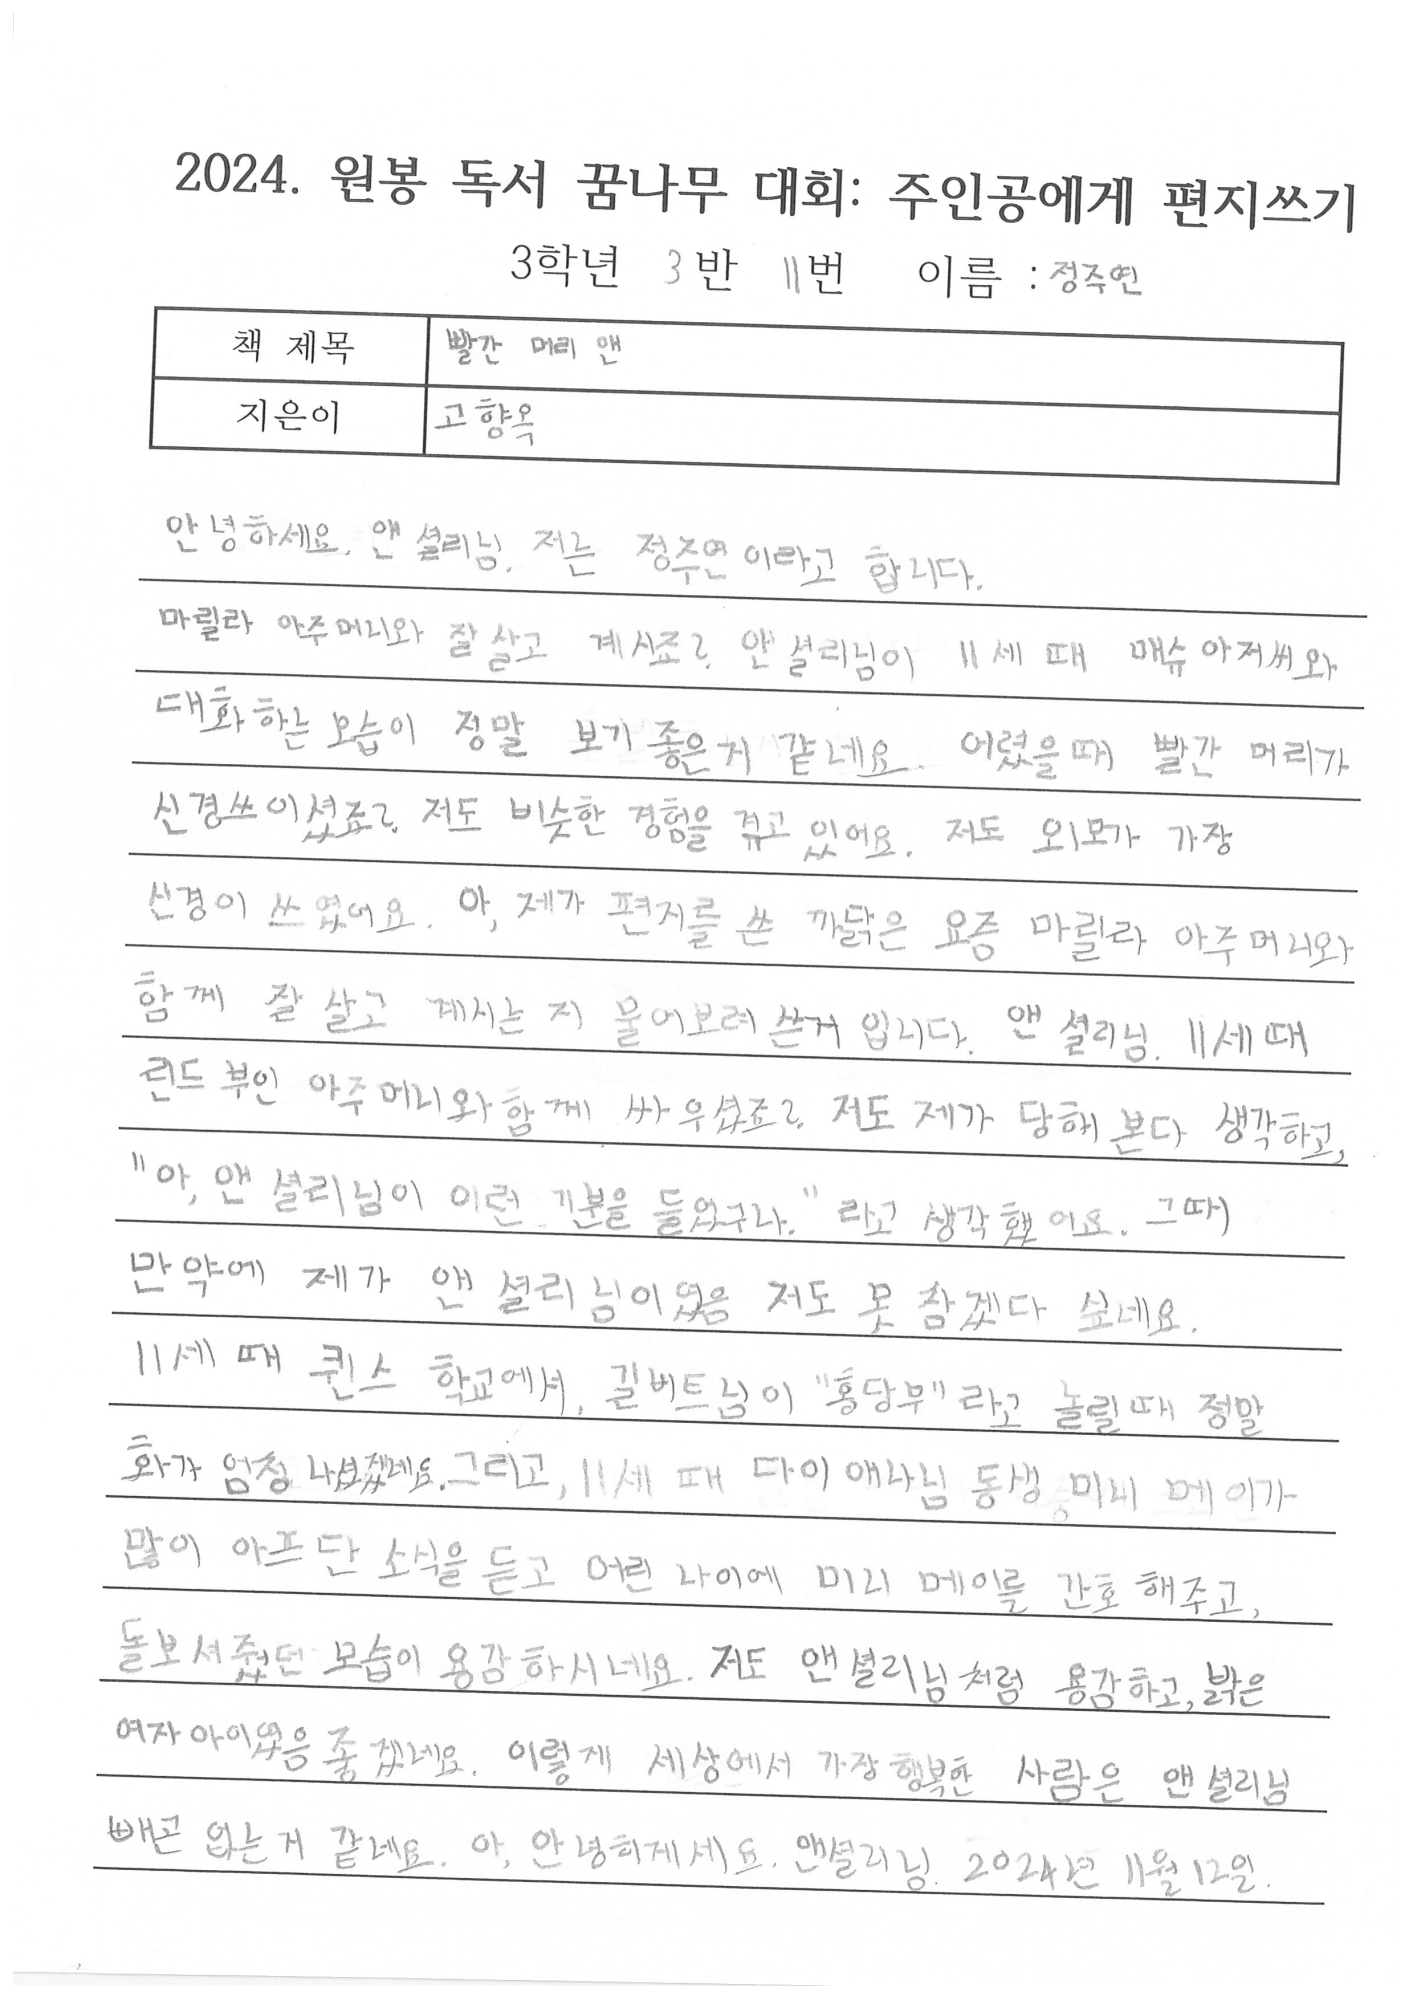 2024. 원봉 독서 꿈나무 대회: 주인공에게 편지쓰기
3학년 3반 11번 이름 : 정주연
책 제목 빨간 머리 앤
지은이 고향옥
안녕하세요. 앤 셜리님. 저는 정주연이라고 합니다.
마릴라 아주머니와 잘 살고 계시죠?. 앤 셜리님이 11세 때 매슈아저씨와
대화하는 모습이 정말 보기 좋은거 같네요. 어렸을때 빨간 머리가
신경쓰이셨죠?. 저도 비슷한 경험을 겪고 있어요. 저도 외모가 가장
신경이 쓰였어요. 아, 제가 편지를 쓴 까닭은 요즘 마릴라 아주머니와
함께 잘 살고 계시는 지 물어보려 쓴거 입니다. 앤 셜리님. 11세때
린드 부인 아주머니와 함께 싸우셨죠?. 저도 제가 당해 본다 생각하고,
"아, 앤 셜리님이 이런 기분을 들었구나." 라고 생각했어요. 그때
만약에 제가 앤 셜리님이였음 저도 못 참겠다 싶네요.
11세 때 퀸스 학교에서, 길버트님이 "홍당무"라고 놀릴때 정말
화가 엄청 나셨겠네요. 그리고, 11세 때 다이애나님 동생 미니 메이가
많이 아프단 소식을 듣고 어린 나이에 미리 메이를 간호해주고,
돌보셔줬던 모습이 용감하시네요. 저도 앤셜리님처럼 용감하고, 밝은
여자아이였음 좋겠네요. 이렇게 세상에서 가장 행복한 사람은 앤셜리님
빼곤 없는거 같네요. 아, 안녕히계세요. 앤셜리님. 2024년 11월 12일.